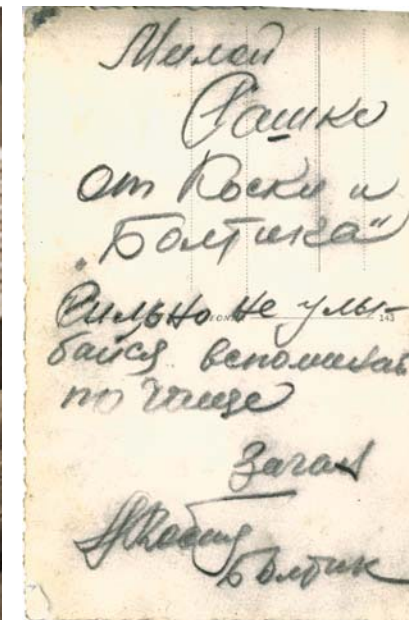 Милой
Сашке
от Коски и
„Болтика“
Сильно не улы-
байся вспоминай
по чаще
Заган
Болтик